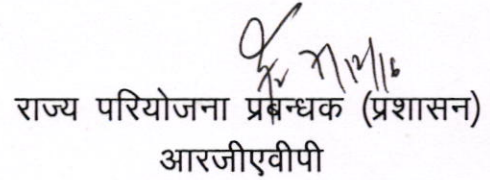 राज्य परियोजना प्रबन्धक (प्रशासन)
आरजीएवीपी